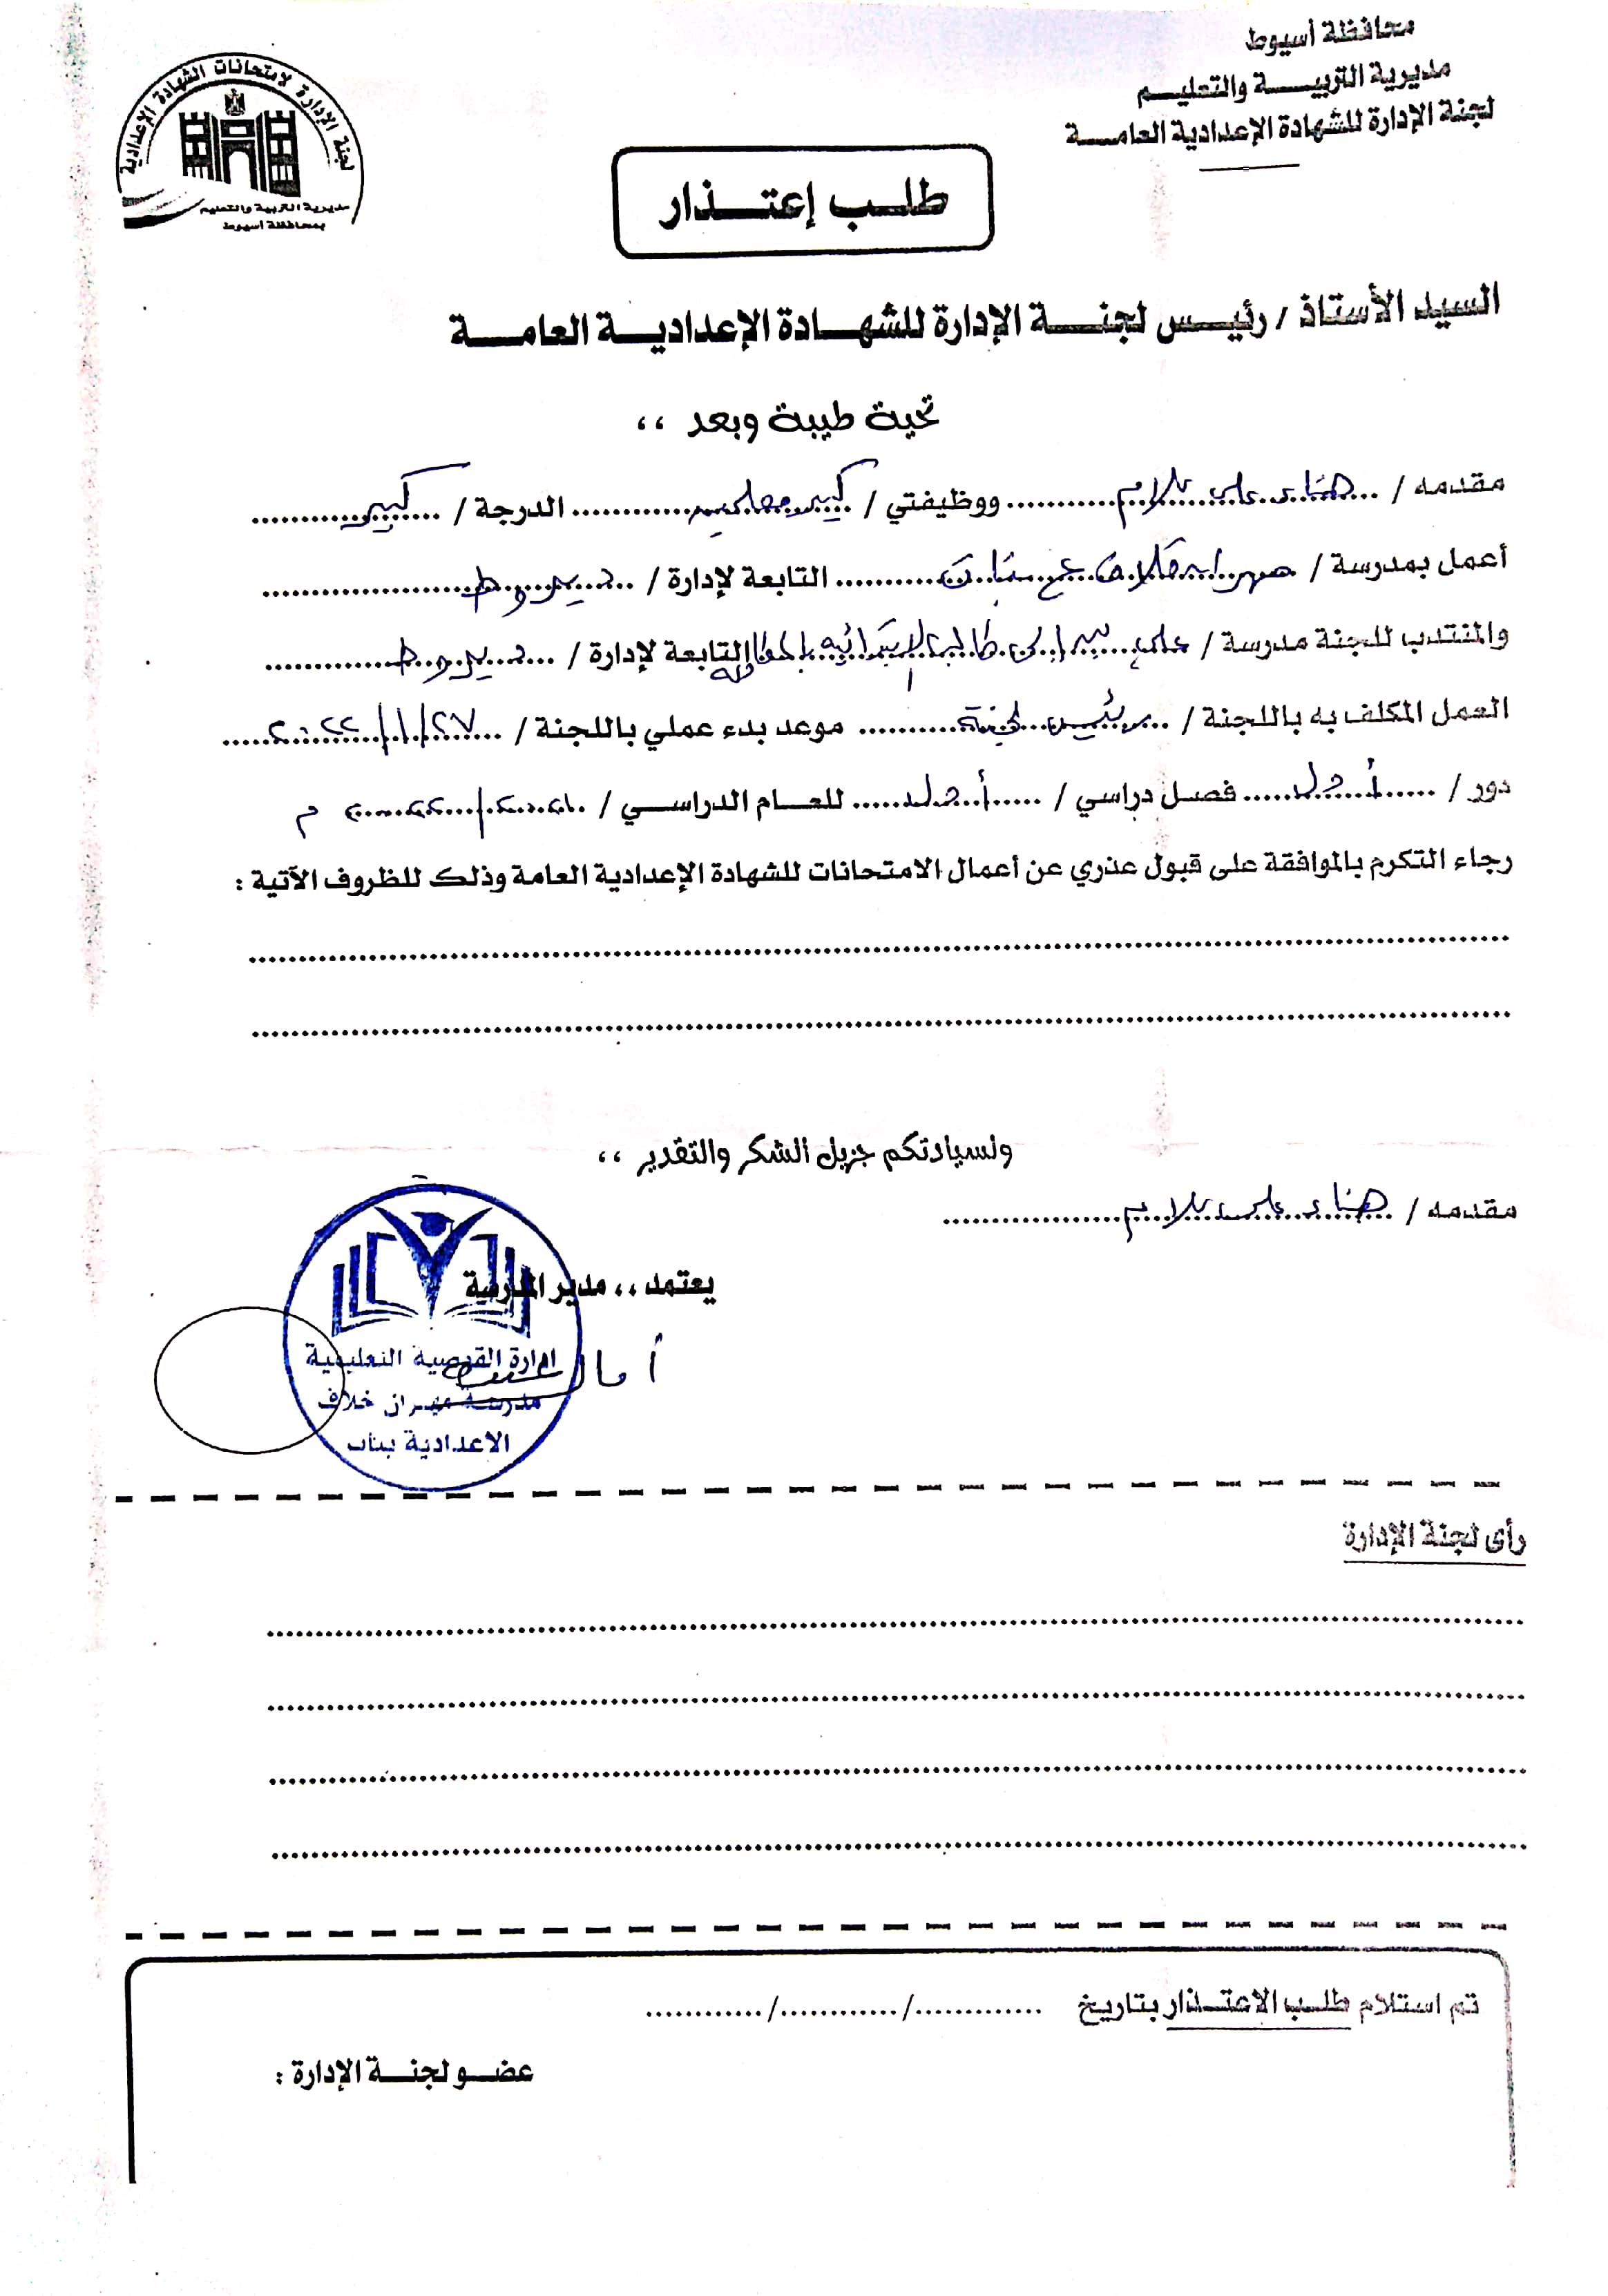 محافظة أسيوط
مديرية التربيـــة والتعليـــم
لجنة الإدارة للشهادة الإعدادية العامـــة
لجنة الإدارة لامتحانات الشهادة الإعدادية
مديرية التربية والتعليم
بمحافظة أسيوط
طلــب إعتــذار
السيد الأستاذ / رئيــس لجنـــة الإدارة للشهـــادة الإعداديـــة العامـــة
تحية طيبة وبعد ،،
مقدمه / هناء علي علام ووظيفتي / كبير معلمين الدرجة / كبير
أعمل بمدرسة / مهران خلاف ع بنات التابعة لإدارة / ديروط
والمنتدب للجنة مدرسة / علي بن أبي طالب الابتدائيه التابعة لإدارة / ديروط
العمل المكلف به باللجنة / رئيس لجنة موعد بدء عملي باللجنة / ٢٧/١/٢٠٢٢
دور / أول فصل دراسي / أول للعــام الدراســي / ٢٠٢١/٢٠٢٢ م
رجاء التكرم بالموافقة على قبول عذري عن أعمال الامتحانات للشهادة الإعدادية العامة وذلك للظروف الآتية :
ولسيادتكم جزيل الشكر والتقدير ،،
مقدمه / هناء علي علام
يعتمد ،، مدير المدرسة
إدارة القوصية التعليمية
مدرسة مهران خلاف
الاعدادية بنات
رأى لجنة الإدارة
تم استلام طلــب الاعتــذار بتاريخ ............/............/............
عضــو لجنــة الإدارة :